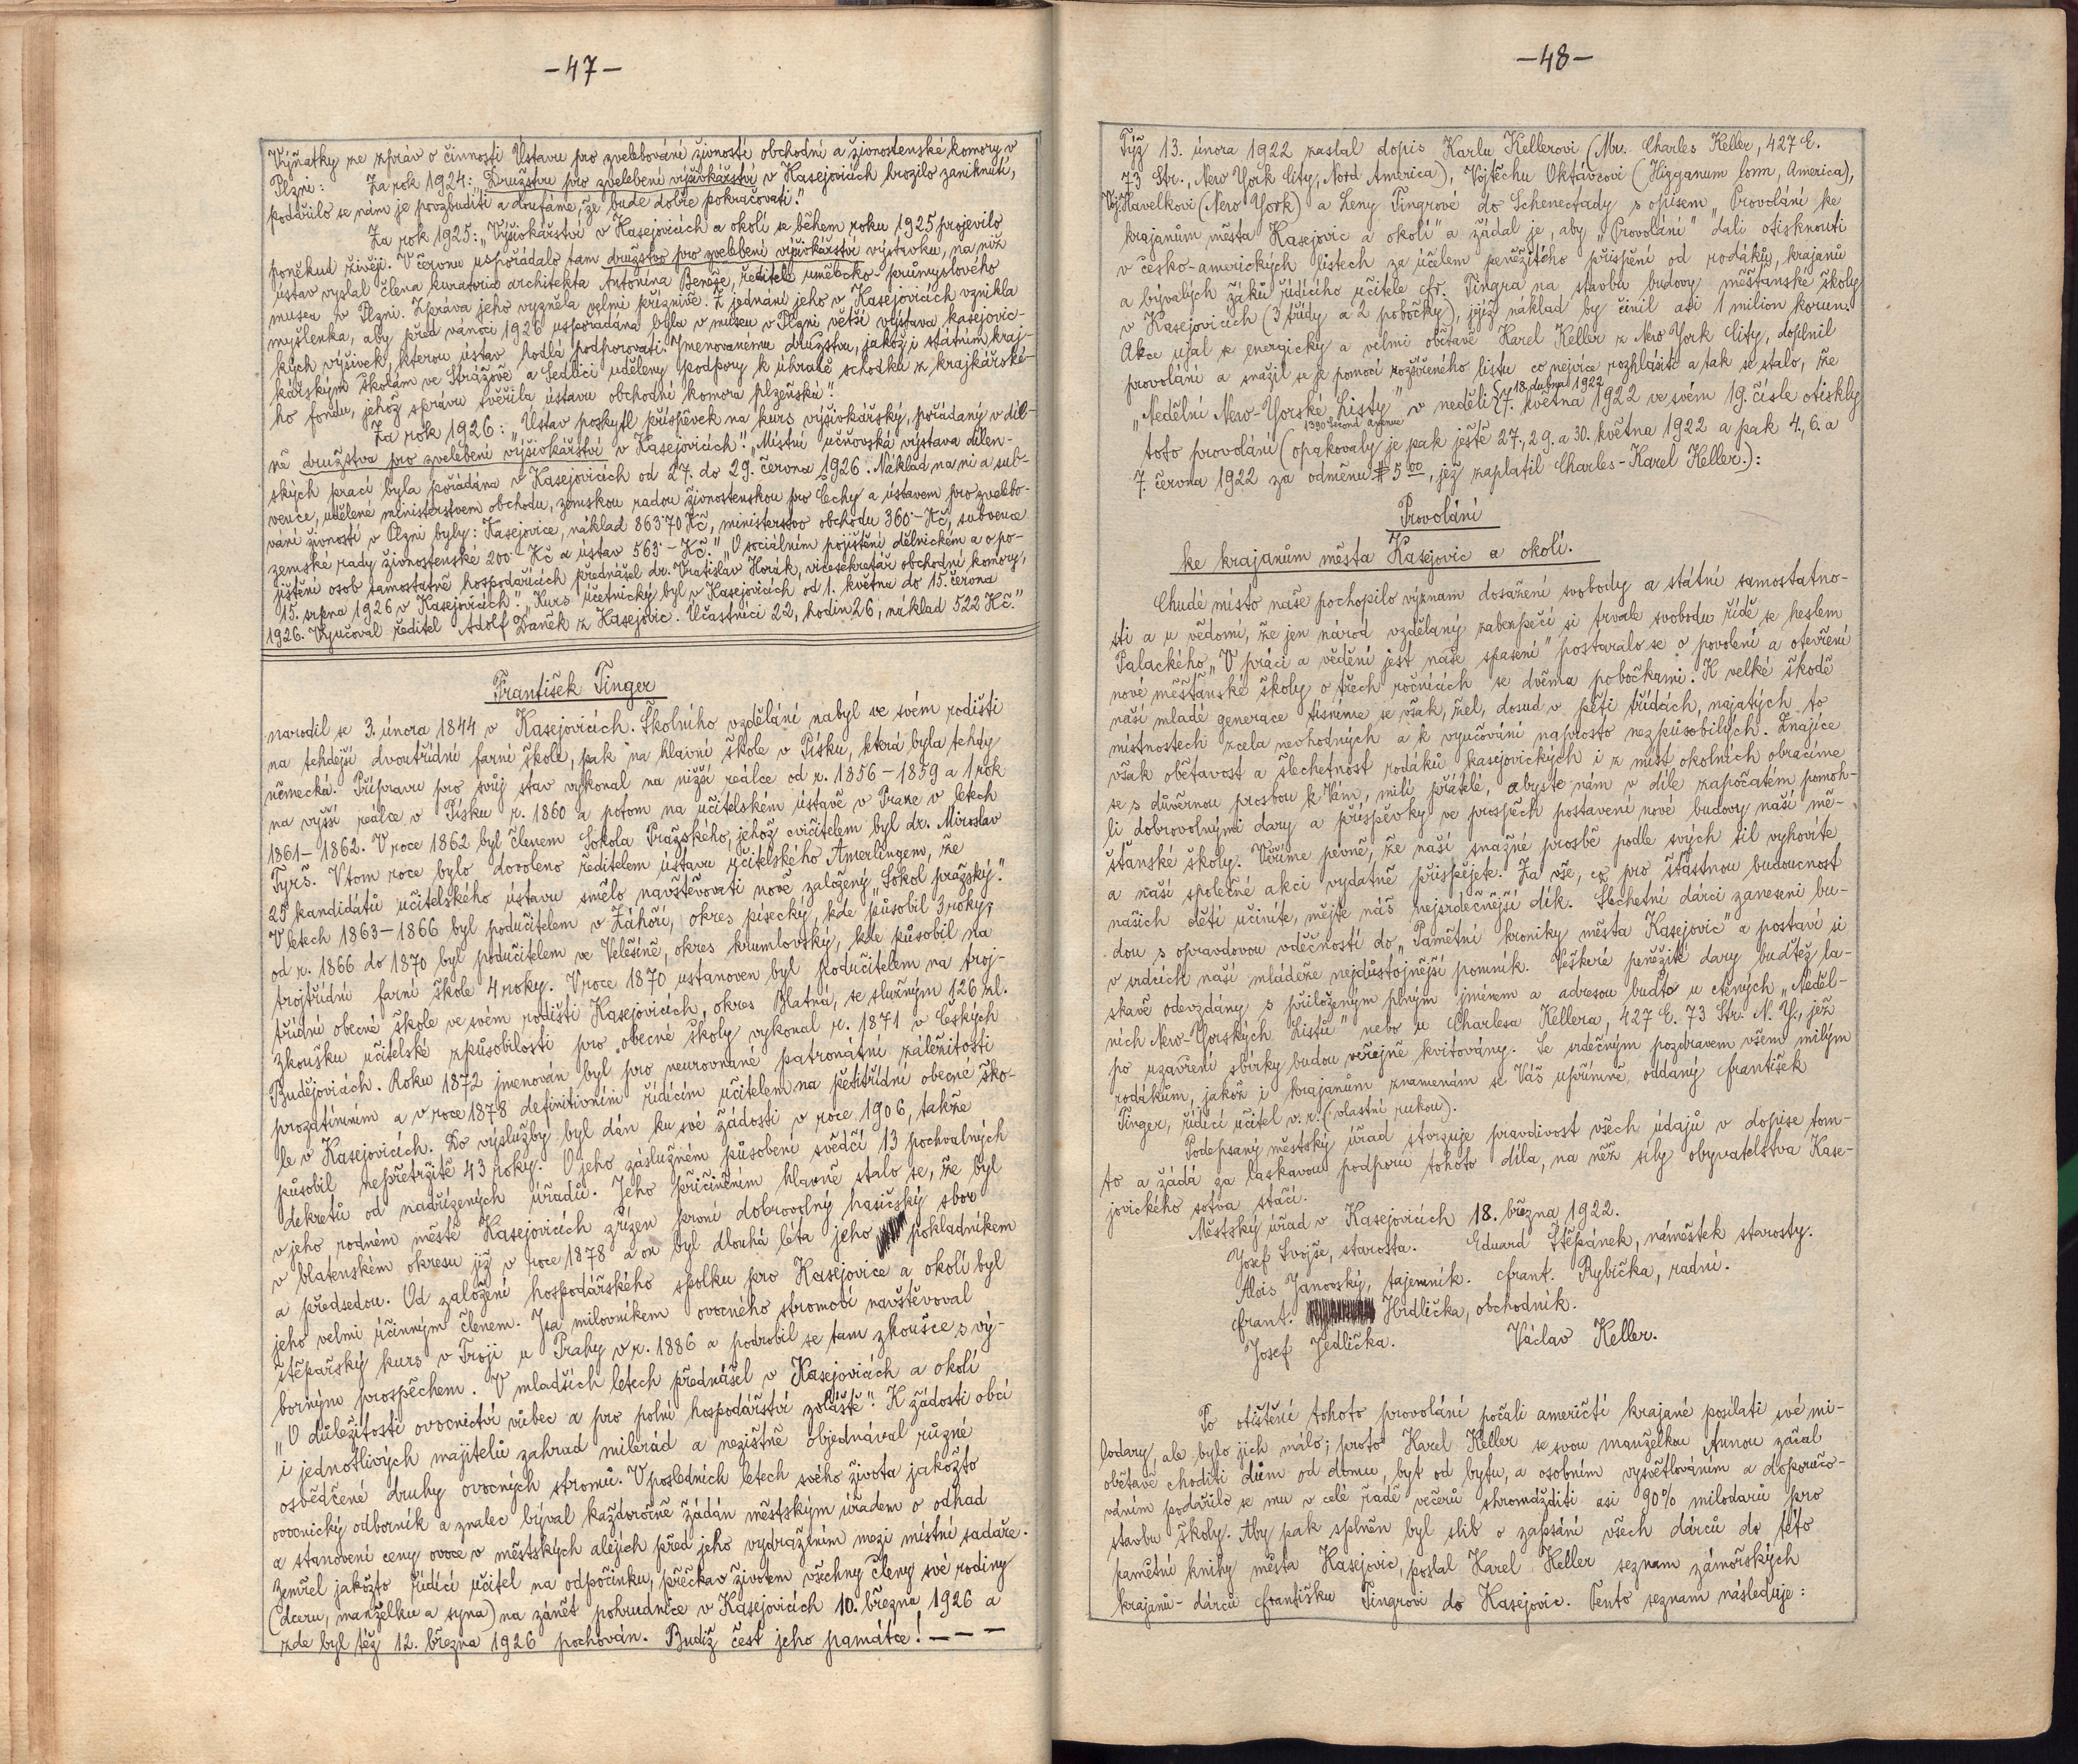 -47-
Výňatky ze zpráv o činnosti Ústavu pro zvelebování živností obchodní a živnostenské komory v
Plzni: Za rok 1924: „Družstvu pro zvelebení vyšívkářství v Kasejovicích hrozilo zaniknutí,
podařilo se nám je povzbuditi a doufáme, že bude dobře pokračovati."
Za rok 1925: „Vyšívkářství v Kasejovicích a okolí se během roku 1925 projevilo
poněkud živěji. V červnu uspořádalo tam družstvo pro zvelebení výšivkářství výstavku, na niž
ústav vyslal člena kuratoria architekta Antonína Beneše, ředitele umělecko-průmyslového
musea v Plzni. Zpráva jeho vyzněla velmi příznivě. Z jednání jeho v Kasejovicích vznikla
myšlenka, aby před vánoci 1926 uspořádána byla v museu v Plzni větší výstava kasejovic-
kých výšivek, kterou ústav hodlá podporovati. Jmenovanému družstvu, jakož i státním kraj-
kářským školám ve Strážově a Sedlici uděleny podpory k úhradě schodku z krajkářské-
ho fondu, jehož správu svěřila ústavu obchodní komora plzeňská".
Za rok 1926: „Ústav poskytl příspěvek na kurs výšivkářský, pořádaný v díl-
ně družstva pro zvelebení výšivkářství v Kasejovicích". „Místní učňovská výstava dílen-
ských prací byla pořádána v Kasejovicích od 27. do 29. června 1926. Náklad na ni a sub-
vence, udělené ministerstvem obchodu, zemskou radou živnostenskou pro Čechy a ústavem pro zvelebo-
vání živností v Plzni byly: Kasejovice, náklad 863·70 Kč, ministerstvo obchodu 360·- Kč, subvence
zemské rady živnostenské 200·- Kč a ústav 563·- Kč." „O sociálním pojištění dělnickém a o po-
jištění osob samostatně hospodařících přednášel dr. Vratislav Horák, vicesekretář obchodní komory,
15. srpna 1926 v Kasejovicích". „Kurs účetnický byl v Kasejovicích od 1. května do 15. června
1926. Vyučoval ředitel Adolf Daněk z Kasejovic. Účastníci 22, hodin 26, náklad 522 Kč."
František Tinger
narodil se 3. února 1844 v Kasejovicích. Školního vzdělání nabyl ve svém rodišti
na tehdejší dvoutřídní farní škole, pak na hlavní škole v Písku, která byla tehdy
německá. Přípravu pro svůj stav vykonal na nižší reálce od r. 1856-1859 a 1 rok
na vyšší reálce v Písku r. 1860 a potom na učitelském ústavě v Praze v letech
1861-1862. V roce 1862 byl členem Sokola Pražského, jehož cvičitelem byl dr. Miroslav
Tyrš. V tom roce bylo dovoleno ředitelem ústavu učitelského Amerlingem, že
25 kandidátů učitelského ústavu smělo navštěvovati nově založený „Sokol pražský."
V letech 1863-1866 byl podučitelem v Záhoří, okres písecký, kde působil 3 roky;
od r. 1866 do 1870 byl podučitelem ve Velešíně, okres krumlovský, kde působil na
trojtřídní farní škole 4 roky. V roce 1870 ustanoven byl podučitelem na troj-
třídní obecné škole ve svém rodišti Kasejovicích, okres Blatná, se služným 126 zl.
Zkoušku učitelské způsobilosti pro obecné školy vykonal r. 1871 v Českých
Budějovicích. Roku 1872 jmenován byl pro neurovnané patronátní záležitosti
prozatímním a v roce 1878 definitivním řídícím učitelem na pětitřídní obecné ško-
le v Kasejovicích. Do výslužby byl dán ku své žádosti v roce 1906, takže
působil nepřetržitě 43 roky. O jeho záslužném působení svědčí 13 pochvalných
dekretů od nadřízených úřadů. Jeho přičiněním hlavně stalo se, že byl
v jeho rodném městě Kasejovicích zřízen první dobrovolný hasičský sbor
v blatenském okresu již v roce 1878 a on byl dlouhá léta jeho pokladníkem
a předsedou. Od založení hospodářského spolku pro Kasejovice a okolí byl
jeho velmi účinným členem. Jsa milovníkem ovocného stromoví navštěvoval
štěpařský kurs v Troji u Prahy v r. 1886 a podrobil se tam zkoušce s vý-
borným prospěchem. V mladších letech přednášel v Kasejovicích a okolí
„O důležitosti ovocnictví vůbec a pro polní hospodářství zvláště". K žádosti obcí
i jednotlivých majitelů zahrad milerád a nezištně objednával různé
osvědčené druhy ovocných stromů. V posledních letech svého života jakožto
ovocnický odborník a znalec býval každoročně žádán městským úřadem o odhad
a stanovení ceny ovoce v městských alejích před jeho vydražením mezi místní sadaře.
Zemřel jakožto řídící učitel na odpočinku, přečkav životem všechny členy své rodiny
(dceru, manželku a syna) na zánět pohrudnice v Kasejovicích 10. března 1926 a
zde byl též 12. března 1926 pochován. Budiž čest jeho památce! - - -
-48-
Týž 13. února 1922 zaslal dopis Karlu Kellerovi (Mr. Charles Keller, 427 E.
73 Str., New York City, Nord America), Vojtěchu Oktávcovi (Higganum Conn, America),
Vojt. Havelkovi (New York) a Leny Tingrové do Schenectady s opisem „Provolání ke
krajanům města Kasejovic a okolí" a žádal je, aby „Provolání" dali otisknouti
v česko-amerických listech za účelem peněžitého přispění od rodáků, krajanů
a bývalých žáků řídícího učitele Fr. Tingra na stavbu budovy měšťanské školy
v Kasejovicích (3 třídy a 2 pobočky), jejíž náklad by činil asi 1 milion korun.
Akce ujal se energicky a velmi obětavě Karel Keller z New York City, doplnil
provolání a snažil se je pomocí rozšířeného listu co nejvíce rozhlásiti a tak se stalo, že
18. dubna 1922
„Nedělní New-Yorské Listy" v neděli 7. května 1922 ve svém 19. čísle otiskly
1390 Second Avenue
toto provolání (opakovaly je pak ještě 27., 29. a 30. května 1922 a pak 4., 6. a
7. června 1922 za odměnu $ 5 00, jež zaplatil Charles-Karel Keller.):
Provolání
ke krajanům města Kasejovic a okolí.
Chudé místo naše pochopilo význam dosažení svobody a státní samostatno-
sti a u vědomí, že jen národ vzdělaný zabezpečí si trvale svobodu řídě se heslem
Palackého „V práci a vědění jest naše spasení" postaralo se o povolení a otevření
nové měšťanské školy o třech ročnících se dvěma pobočkami. K velké škodě
naší mladé generace tísníme se však, žel, dosud v pěti třídách, najatých to
místnostech zcela nevhodných a k vyučování naprosto nezpůsobilých. Znajíce
však obětavost a šlechetnost rodáků kasejovických i z míst okolních obracíme
se s důvěrnou prosbou k Vám, milí přátelé, abyste nám v díle započatém pomoh-
li dobrovolnými dary a příspěvky ve prospěch postavení nové budovy naší mě-
šťanské školy. Věříme pevně, že naší snažné prosbě podle svých sil vyhovíte
a naší společné akci vydatně přispějete. Za vše, co pro šťastnou budoucnost
našich dětí učiníte, mějte náš nejsrdečnější dík. Šlechetní dárci zaneseni bu-
dou s opravdovou vděčností do „Pamětní kroniky města Kasejovic" a postaví si
v srdcích naší mládeže nejdůstojnější pomník. Veškeré peněžité dary buďtež la-
skavě odevzdány s přiloženým plným jménem a adresou buďto u ctěných „Neděl-
ních New-Yorských Listů" nebo u Charlesa Kellera, 427 E. 73 Str. N. Y., jež
po uzavření sbírky budou veřejně kvitovány. Se srdečným pozdravem všem milým
rodákům, jakož i krajanům znamenám se Váš upřímně oddaný František
Tinger, řídící učitel v. r. (vlastní rukou).
Podepsaný městský úřad stvrzuje pravdivost všech údajů v dopise tom-
to a žádá za laskavou podporu tohoto díla, na něž síly obyvatelstva Kase-
jovického sotva stačí.
Městský úřad v Kasejovicích 18. března 1922.
Josef Svojše, starosta. Eduard Štěpánek, náměstek starosty.
Alois Janovský, tajemník. Frant. Rybička, radní.
Frant. Hrdlička, obchodník.
Josef Jedlička. Václav Keller.
Po otištění tohoto provolání počali američtí krajané posílati své mi-
lodary, ale bylo jich málo; proto Karel Keller se svou manželkou Annou začal
obětavě choditi dům od domu, byt od bytu, a osobním vysvětlováním a doporučo-
váním podařilo se mu v celé řadě večerů shromážditi asi 90% milodarů pro
stavbu školy. Aby pak splněn byl slib o zapsání všech dárců do této
pamětní knihy města Kasejovic, poslal Karel Keller seznam zámořských
krajanů-dárců Františku Tingrovi do Kasejovic. Tento seznam následuje: